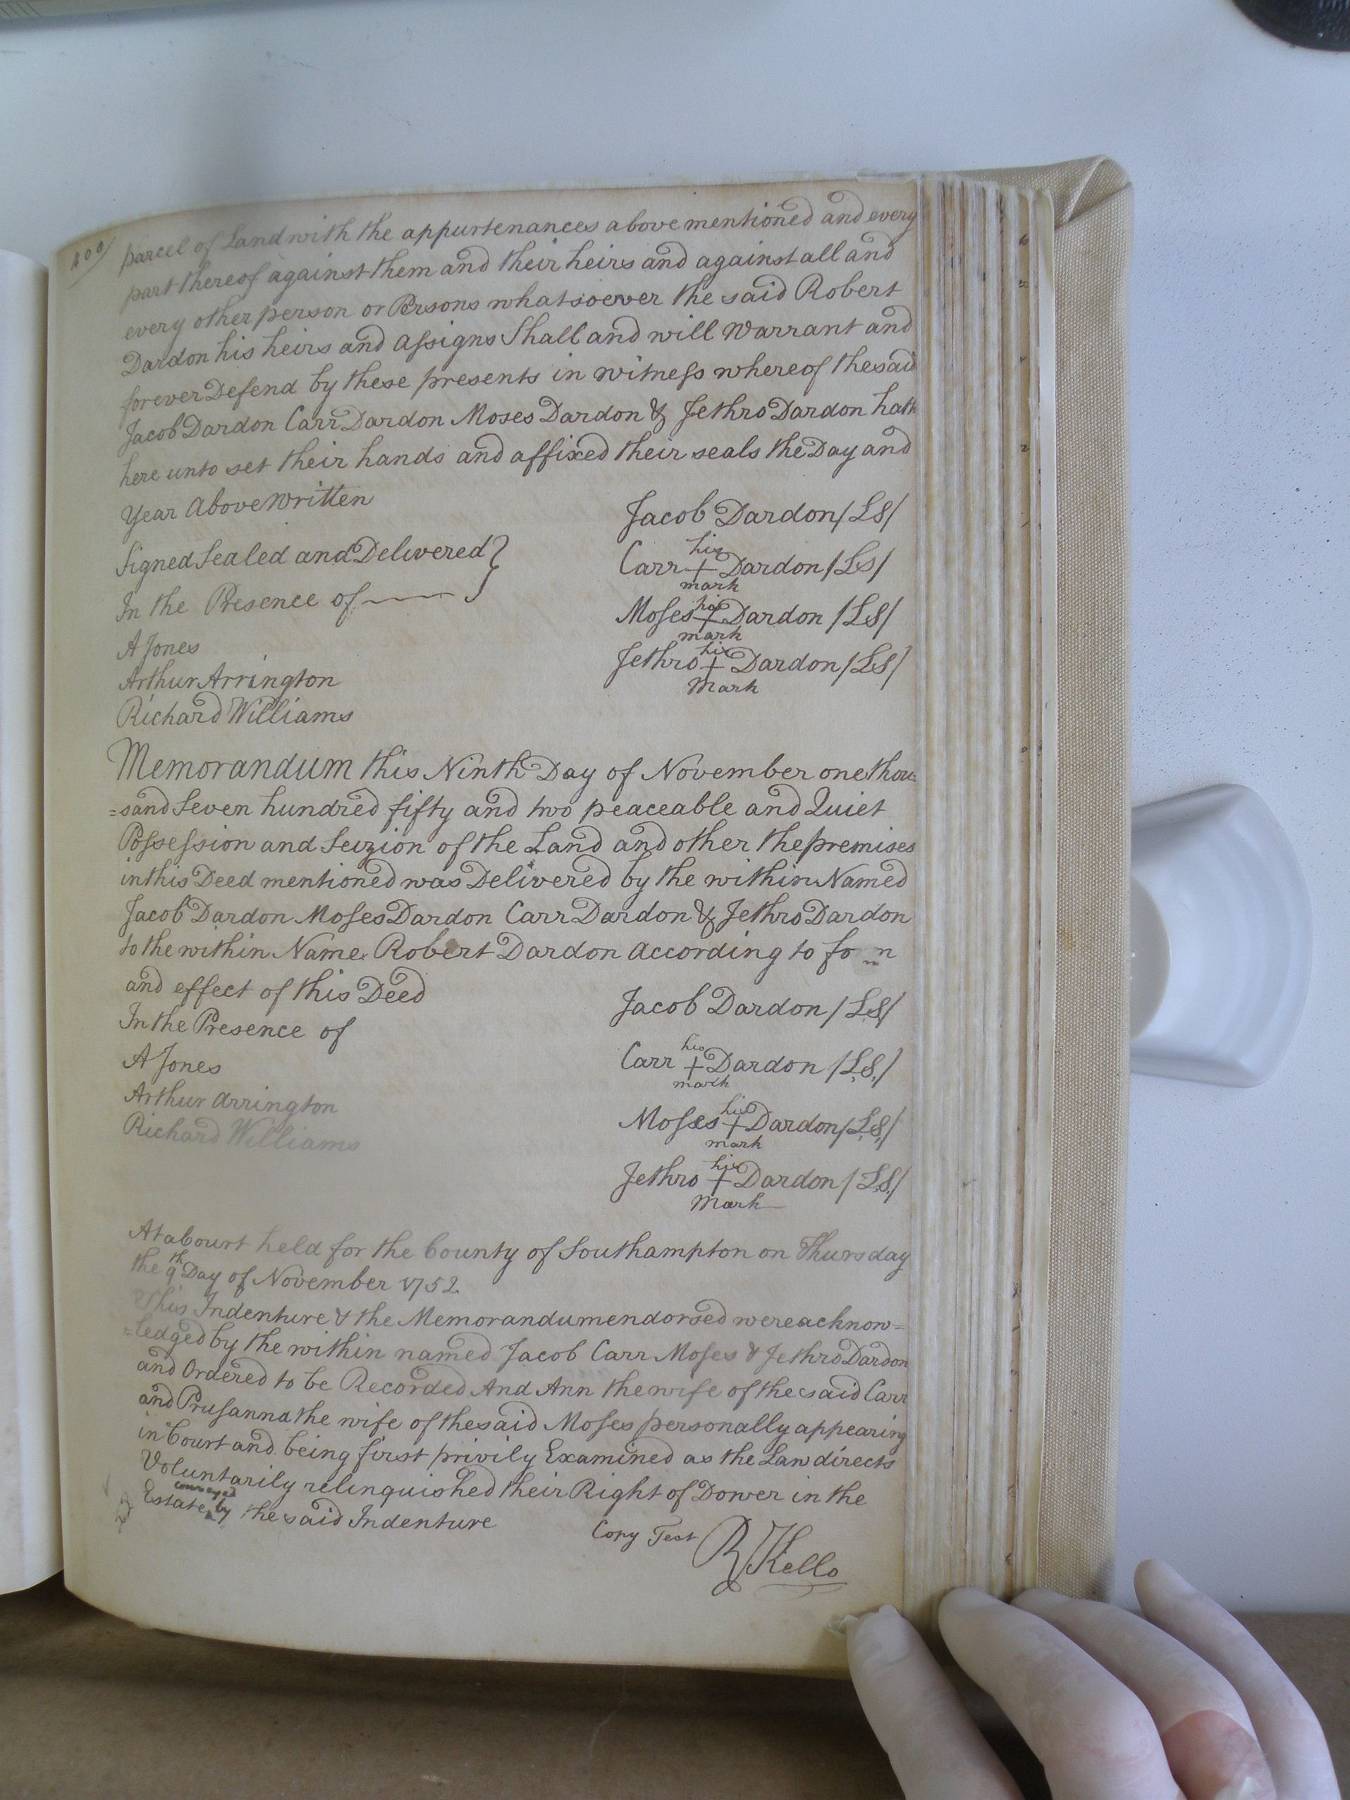 400/
parcel of Land with the appurtenances above mentioned and every
part thereof against them and their heirs and against all and
every other person or Persons whatsoever the said Robert
Dardon his heirs and assigns Shall and will Warrant and
forever Defend by these presents in witness whereof the said
Jacob Dardon Carr Dardon Moses Dardon & Jethro Dardon hath
here unto set their hands and affixed their seals the Day and
Year Above Written
Jacob Dardon /LS/
Signed Sealed and Delivered }
In the Presence of
his
Carr + Dardon /LS/
mark
his
Moses + Dardon /LS/
mark
his
Jethro + Dardon /LS/
Mark
A Jones
Arthur Arrington
Richard Williams
Memorandum this Ninth Day of November one thou=
=sand Seven hundred fifty and two peaceable and Quiet
Possession and Seizion of the Land and other the premises
in this Deed mentioned was Delivered by the within Named
Jacob Dardon Moses Dardon Carr Dardon & Jethro Dardon
to the within Name Robert Dardon According to
and effect of this Deed
In the Presence of
A Jones
Arthur Arrington
Richard Williams
Jacob Dardon /LS/
his
Carr + Dardon /L.S./
mark
his
Moses + Dardon /L.S./
mark
his
Jethro + Dardon /L.S./
Mark
At a Court held for the County of Southampton on Thursday
the 9th Day of November 1752.
This Indenture & the Memorandum endorsed were acknow=
=ledged by the within named Jacob Carr Moses & Jethro Dardon
and Ordered to be Recorded And Ann the wife of the said Carr
and Prusanna the wife of the said Moses personally appearing
in Court and being first privily Examined as the Law directs
Voluntarily relinquished their Right of Dower in the
Estate conveyed by the said Indenture
Copy Test
R Kello